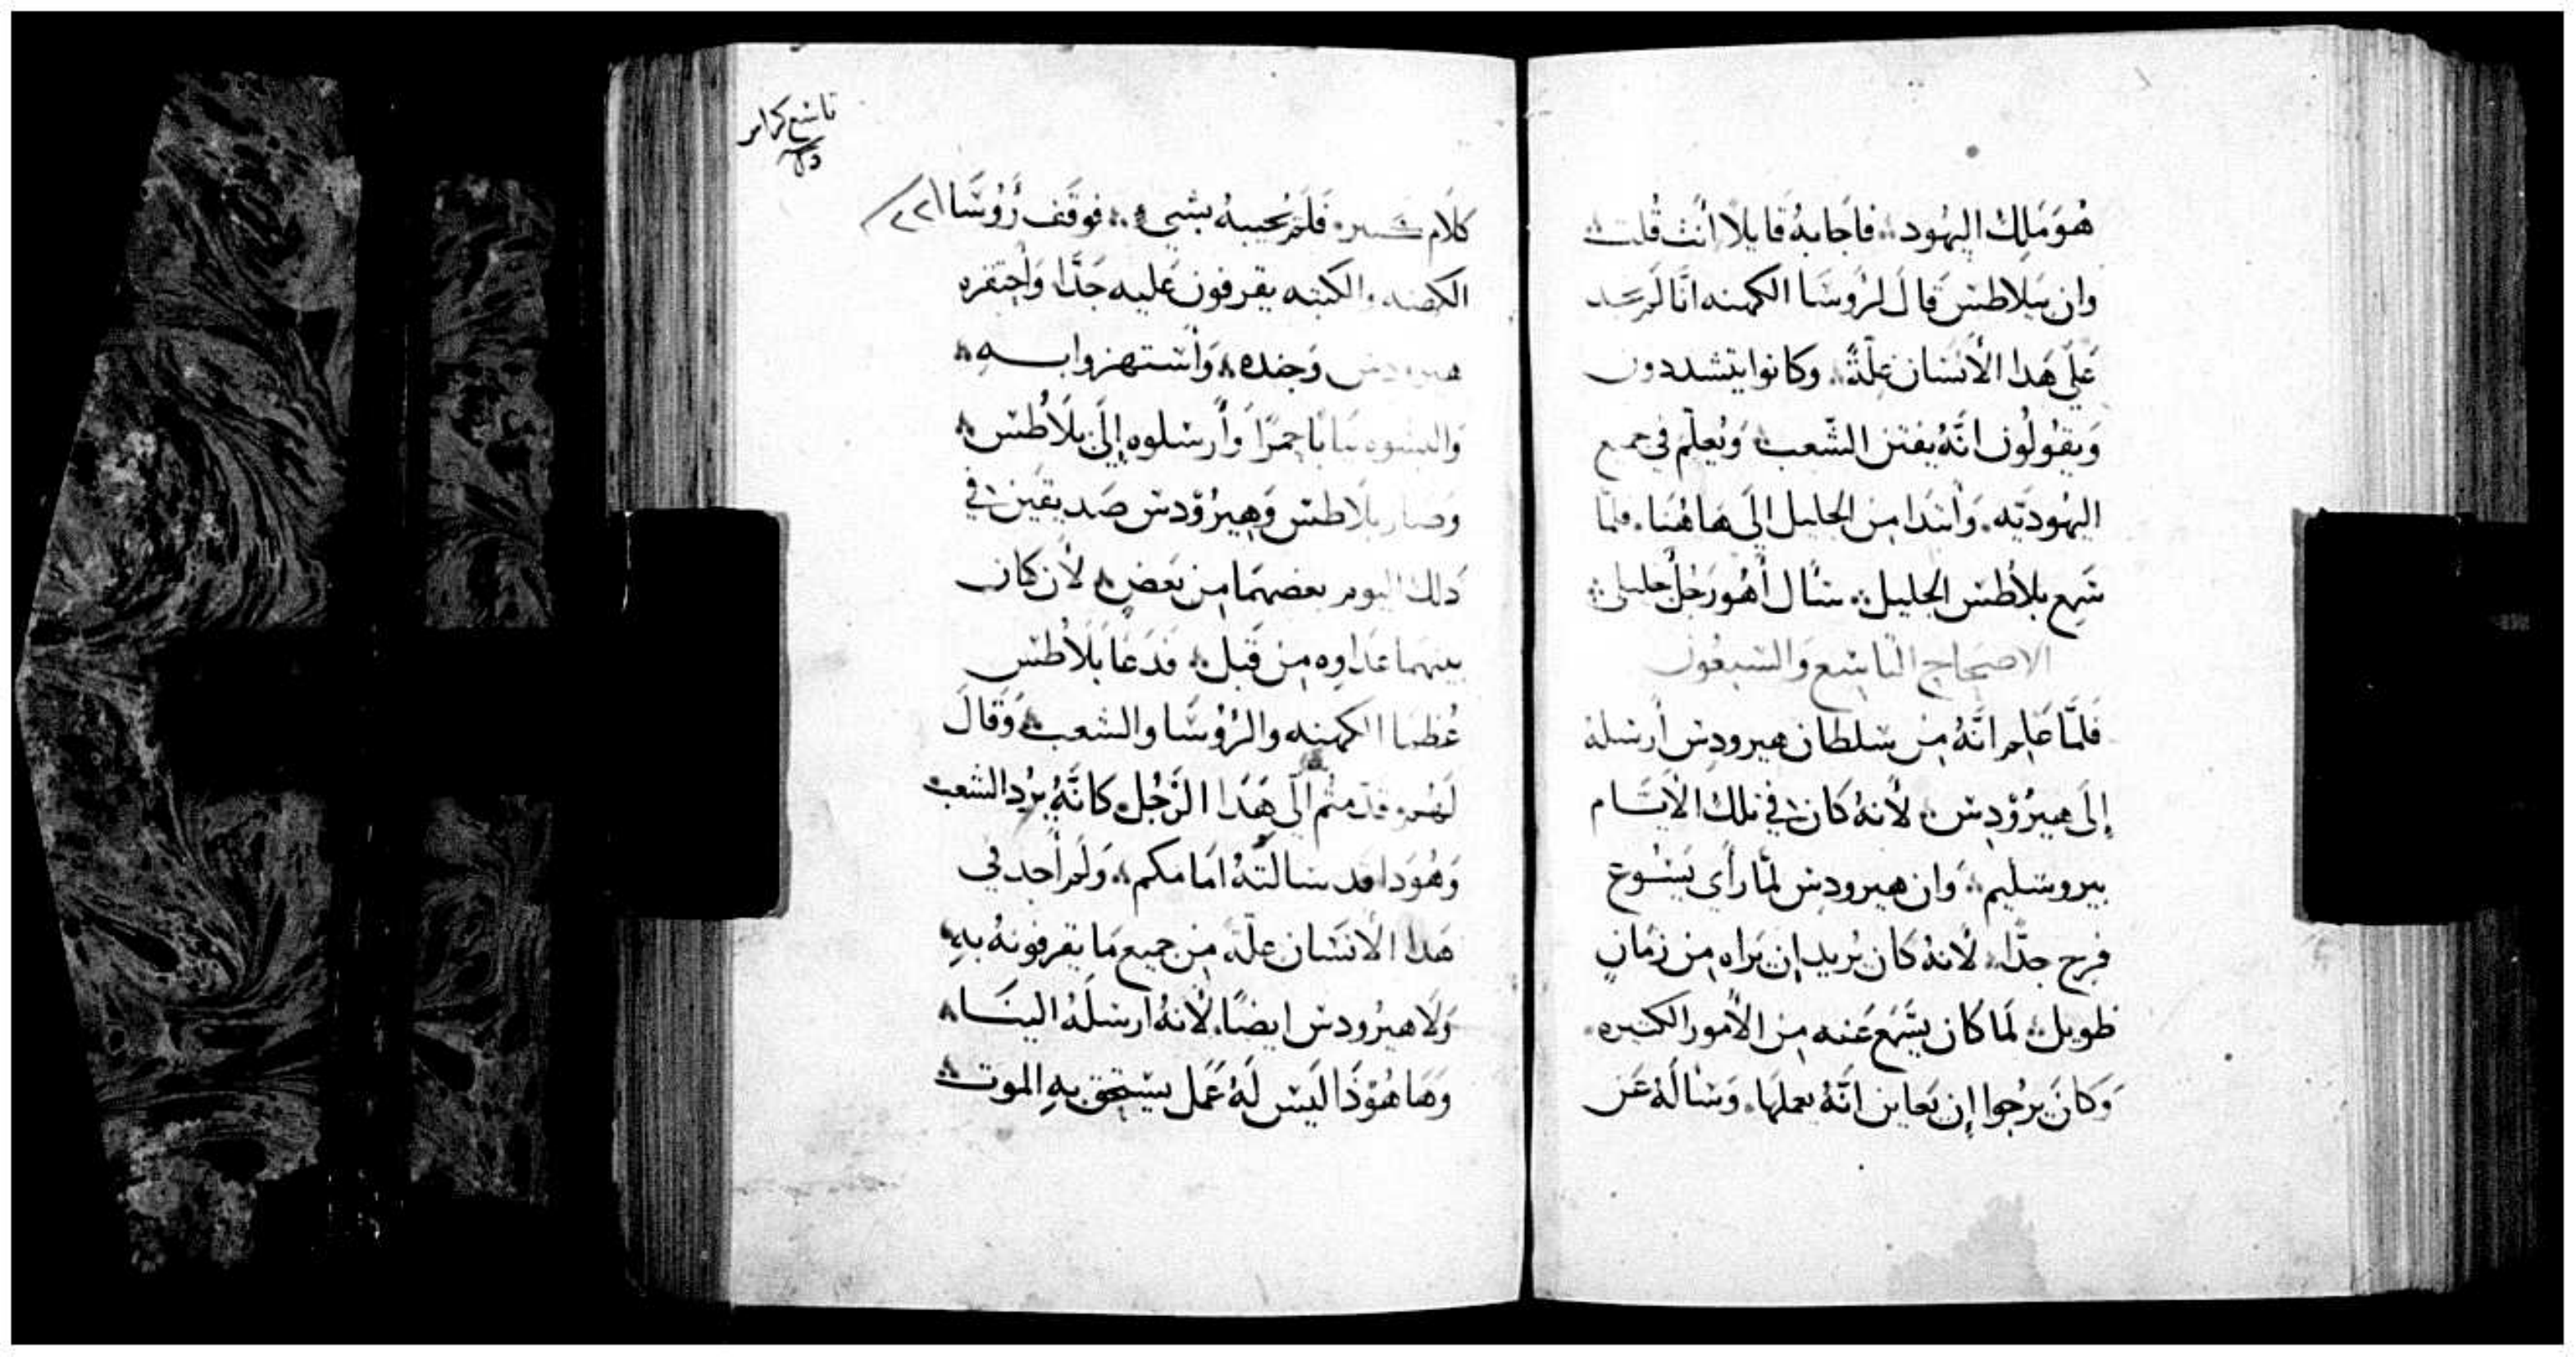 هُوَ مَلِك اليَهُود؞ فاجَابهُ قايلًا أنتَ قُلت؞
وان بيلاطس قالَ لرُوسَا الكهنه انَّا لم نجد
عَلَى هَدا الأنسَان عِلّةً؞ وكانوا يتشددون
وَيقولُون انَّهُ يفتن الشّعب؞ وَيُعلّم في جميع
اليهُوديّه. وَابتدا من الجَليل إلى هَاهُنا. فلمّا
سَمِع بلاطس الجليل؞ سَأل أهُو رَجُلٌ جليلى؞
الاصحاح التاسع والسَبعون
فَلمَّا عَلِم انَّهُ مِن سلطان هيرودس أرسَلهُ
إلَى هيرُوْدِس؞ لأنهُ كان في تلك الأيَّام
بيروشليم؞ وَان هيرودس لمّا رأى يَسُوع
فرح جدّا؞ لأنهُ كان يُريد إن يَراه مِن زمَانٍ
طويل؞ لَما كان يسّمع عَنه مِن الأمور الكثيره.
وَكانَ يرجوا إن يَعاين انّهُ يعملهَا. وَسَالَهُ عَن
تاسع كراس
كلَام كثير؞ فَلَم يُجيبهُ بشيء؞ فوقف رُوُسَّا
الكهنه والكتبه يقرفون عَليه جَدًّا وَاحتقره
هيرودس وَجنده؞ وَاستهزوا بــه؞
وَالبسُوه ثيابًا حمرًا وَأرسَلوه إلَى بلَاطس؞
وصار بلَاطس وَهيرُوْدس صَديقين في
دَلك اليوم بعضهمَا مِن بَعضٍ؞ لأن كان
بينهما عَداوه مِن قَبل؞ فدعَا بَلَاطس
عُظما الكهنه والرُوُسَّا والشعب؞ وَقالَ
لَهُم؞ قدمتُم الَي هَدَا الرَّجُل؞ كانَّهُ يرُد الشعب
وَهُوَدا قد سَالتُهُ امَامكم؞ وَلَم أجد في
هَدا الأنسَان علّه مِن جميع مَا يقرفونهُ بهِ؞
وَلَا هيرُودس ايضًا. لأنهُ ارسَلَهُ الينَــا؞
وَهَا هُوْذَا ليَس لَهُ عَمَل يستحق بهِ الموت؞